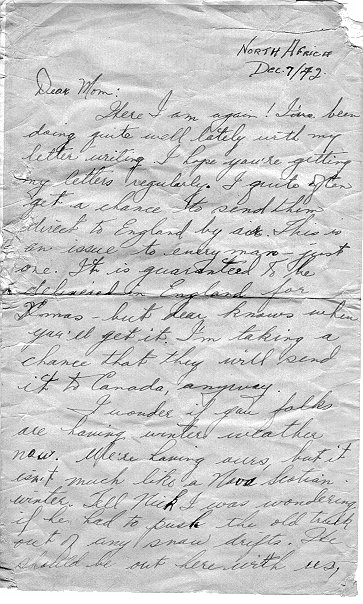 NORTH AFRICA
DEC. 7/42.
Dear Mom:
Here I am again! I've been
doing quite well lately with my
letter writing. I hope you're getting
my letters regularly. I quite often
get a chance to send them
direct to England by air. This is
an issue to every man – just
one. It is guaranteed to be
delivered in England for
Xmas – but dear knows when
you'll get it. I'm taking a
chance that they will send
it to Canada, anyway.
I wonder if you folks
are having winter weather
now. We're having ours, but it
isn't much like a Nova Scotian
winter. Tell Nick I was wondering
if he had to push the old truck
out of any snow drifts. He
should be out here with us,